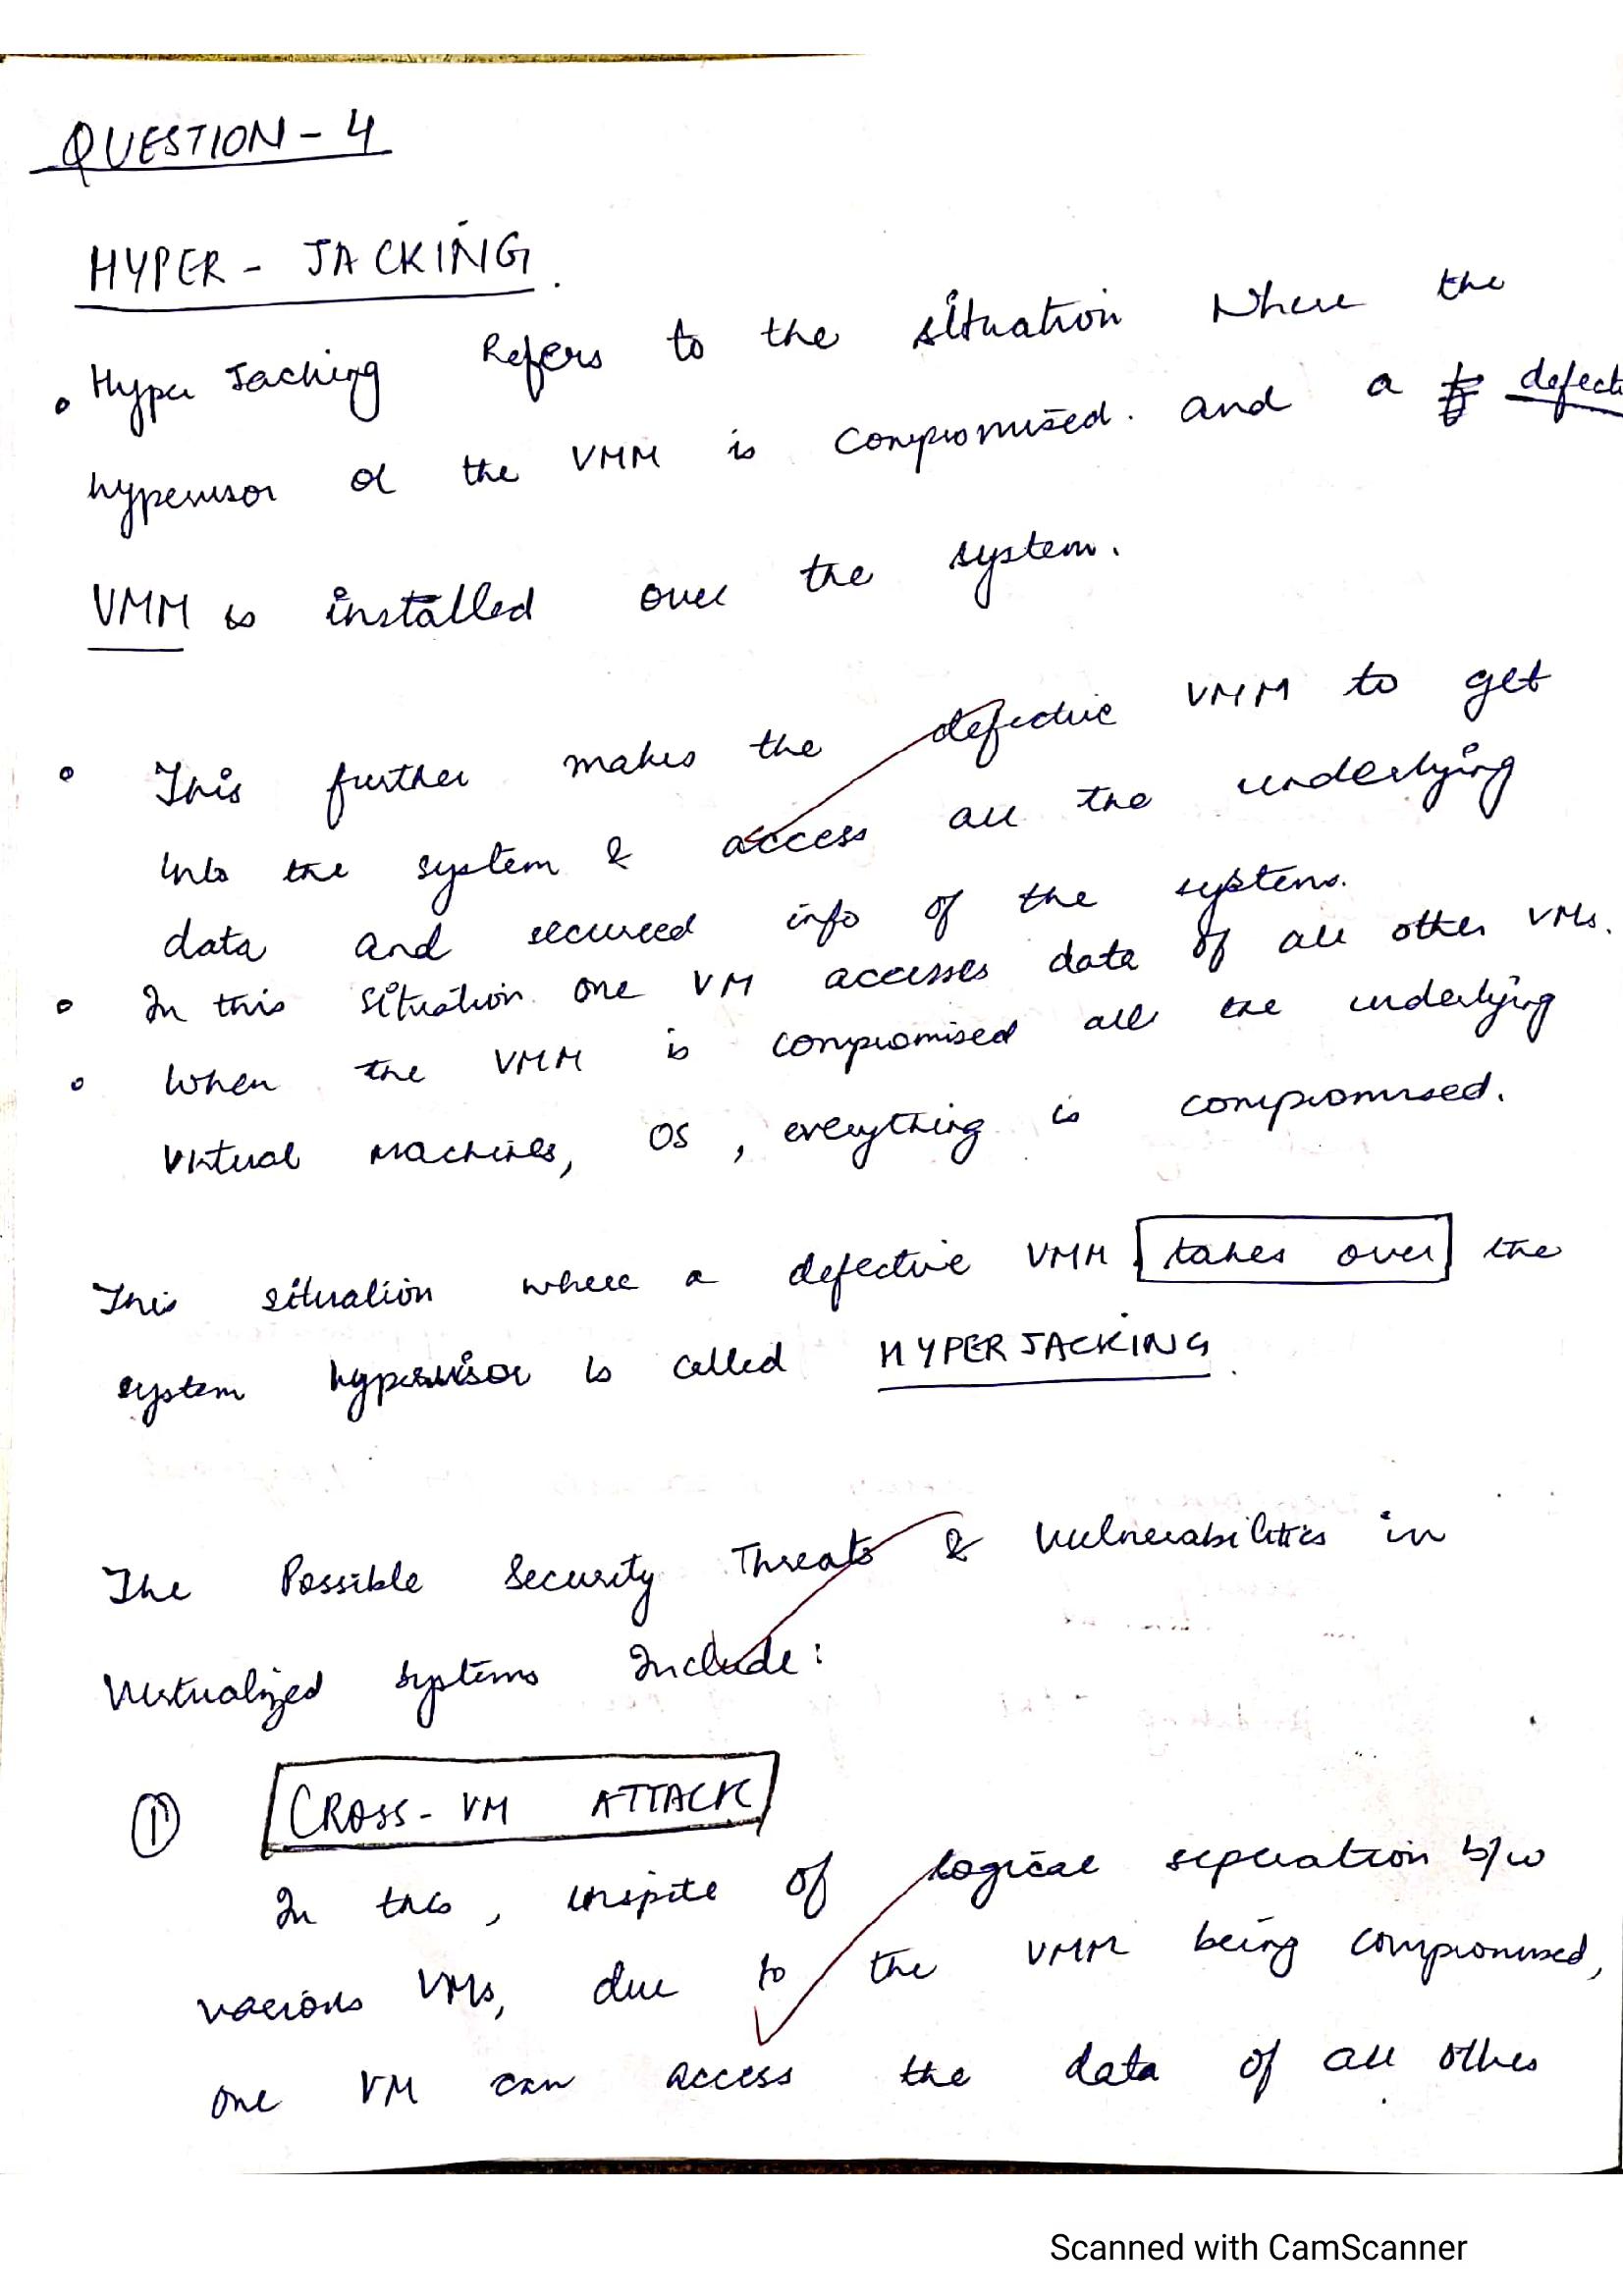 QUESTION - 4
HYPER - JACKING.
• Hyper Jacking Refers to the situation Where the
hypervisor or the VMM is compromised. and a defect
VMM is installed over the system.
• This further makes the defective VMM to get
into the system & access all the underlying
data and secured info of the systems.
• In this situation one VM accesses data of all other VMs.
• When the VMM is compromised all the underlying
virtual machines, OS, everything is compromised.
This situation where a defective VMM takes over the
system hypervisor is called HYPERJACKING.
The Possible Security Threats & Vulnerabilities in
Virtualized systems Include:
① CROSS-VM ATTACK
In this, inspite of logical separation b/w
various VMs, due to the VMM being compromised,
one VM can access the data of all other
Scanned with CamScanner